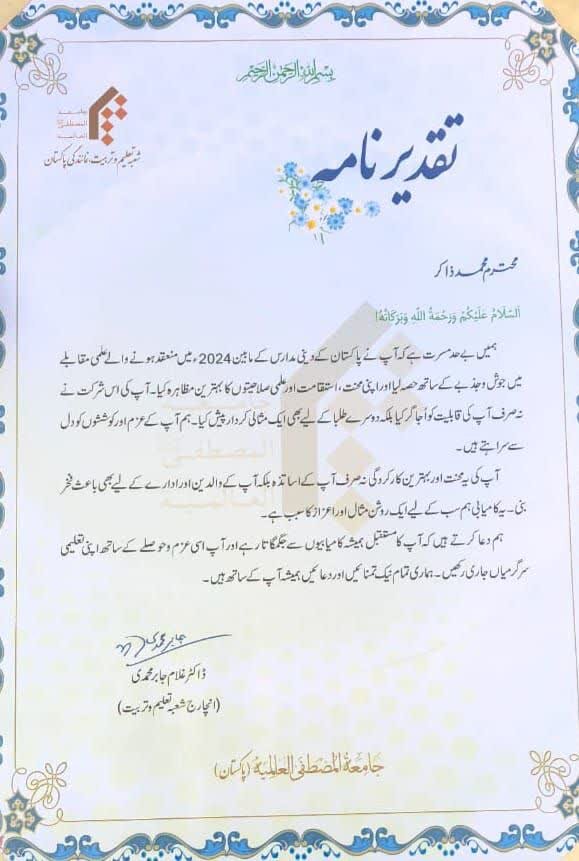 بسم اللہ الرحمن الرحیم
جامعة
المصطفیٰ
العالمیة
شعبہ تعلیم و تربیت، نمائندگی پاکستان
تقدیر نامہ
محترم محمد ذاکر
اَلسَّلَامُ عَلَيْكُمْ وَرَحْمَةُ اللهِ وَبَرَكَاتُهُ!
ہمیں بے حد مسرت ہے کہ آپ نے پاکستان کے دینی مدارس کے مابین 2024ء میں منعقد ہونے والے علمی مقابلے
میں جوش و جذبے کے ساتھ حصہ لیا اور اپنی محنت، استقامت اور علمی صلاحیتوں کا بہترین مظاہرہ کیا۔ آپ کی اس شرکت نے
نہ صرف آپ کی قابلیت کو اُجاگر کیا بلکہ دوسرے طلبا کے لیے بھی ایک مثالی کردار پیش کیا۔ ہم آپ کے عزم اور کوششوں کو دل
سے سراہتے ہیں۔
آپ کی یہ محنت اور بہترین کارکردگی نہ صرف آپ کے اساتذہ بلکہ آپ کے والدین اور ادارے کے لیے بھی باعث فخر
بنی۔ یہ کامیابی ہم سب کے لیے ایک روشن مثال اور اعزاز کا سبب ہے۔
ہم دعا کرتے ہیں کہ آپ کا مستقبل ہمیشہ کامیابیوں سے جگمگاتا رہے اور آپ اسی عزم و حوصلے کے ساتھ اپنی تعلیمی
سرگرمیاں جاری رکھیں۔ ہماری تمام نیک تمنائیں اور دعائیں ہمیشہ آپ کے ساتھ ہیں۔
جامعة
المصطفیٰ
العالمیة
ڈاکٹر غلام جابر محمدی
(انچارج شعبہ تعلیم و تربیت)
جامعة المصطفیٰ العالمیة (پاکستان)